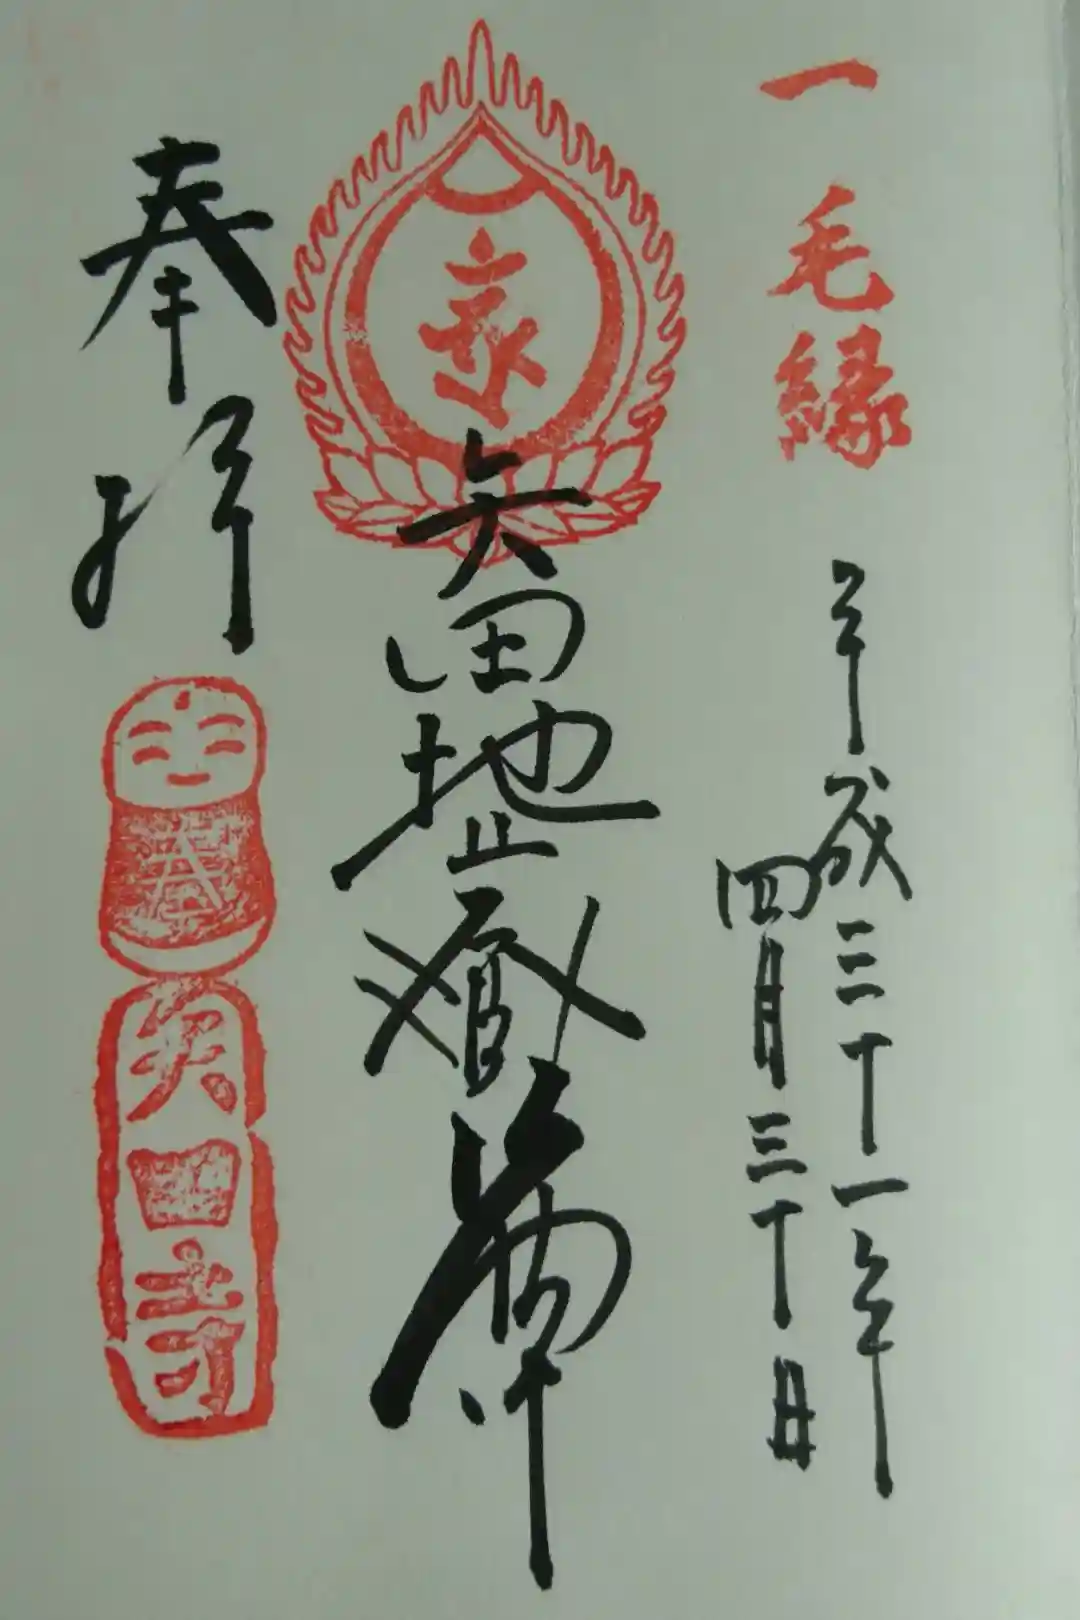 一毛縁
平成三十一年
四月三十日
矢田地蔵尊
奉拝
矢田寺